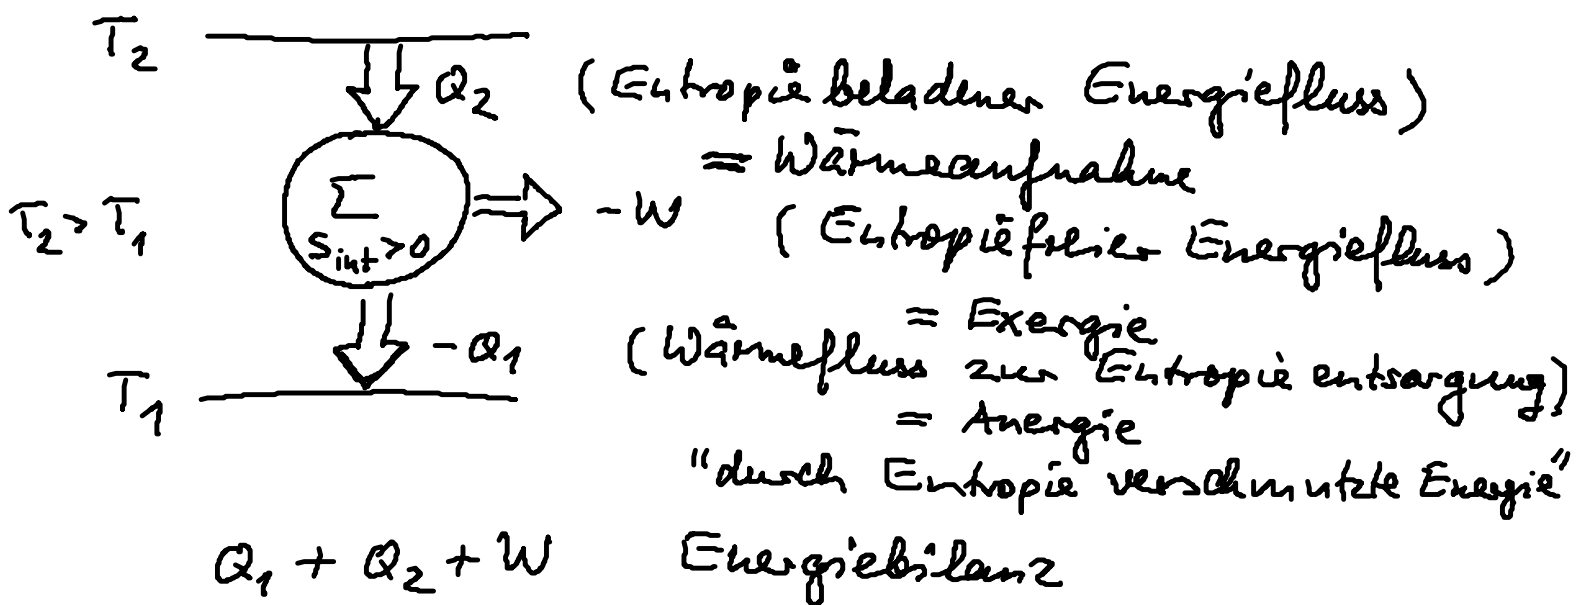 T₂
Q₂ (Entropie beladener Energiefluss)
= Wärmeaufnahme
T₂ > T₁ Σ -W
S_int > 0 (Entropiefreier Energiefluss)
= Exergie
-Q₁ (Wärmefluss zur Entropie entsorgung)
T₁ = Anergie
"durch Entropie verschmutzte Energie"
Q₁ + Q₂ + W Energiebilanz